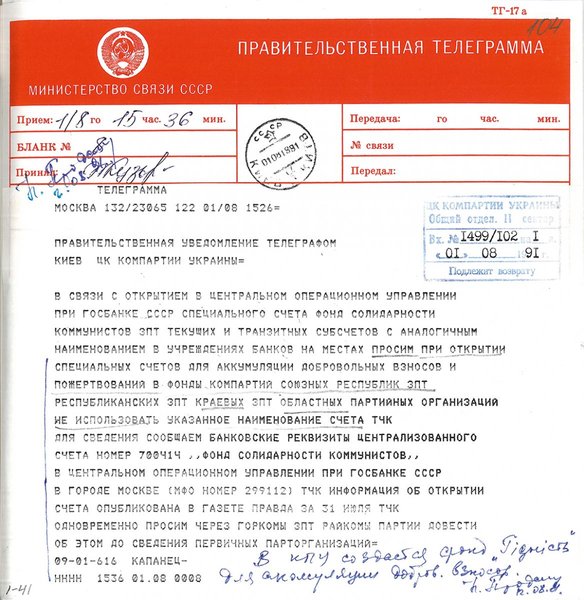 ТГ-17а
104
ПРАВИТЕЛЬСТВЕННАЯ ТЕЛЕГРАММА
МИНИСТЕРСТВО СВЯЗИ СССР
Прием: 1/8 го 15 час. 36 мин.
БЛАНК №
Принял:
Передача: го час. мин.
№ связи
Передал:
СССР
КИЇВ
ТЕЛЕГРАММА
МОСКВА 132/23065 122 01/08 1526=
ЦК КОМПАРТИИ УКРАИНЫ
Общий отдел. II сектор
Вх. № 1499/102 1
«01» 08 91
Подлежит возврату
ПРАВИТЕЛЬСТВЕННАЯ УВЕДОМЛЕНИЕ ТЕЛЕГРАФОМ
КИЕВ ЦК КОМПАРТИИ УКРАИНЫ=
В СВЯЗИ С ОТКРЫТИЕМ В ЦЕНТРАЛЬНОМ ОПЕРАЦИОННОМ УПРАВЛЕНИИ
ПРИ ГОСБАНКЕ СССР СПЕЦИАЛЬНОГО СЧЕТА ФОНД СОЛИДАРНОСТИ
КОММУНИСТОВ ЗПТ ТЕКУЩИХ И ТРАНЗИТНЫХ СУБСЧЕТОВ С АНАЛОГИЧНЫМ
НАИМЕНОВАНИЕМ В УЧРЕЖДЕНИЯХ БАНКОВ НА МЕСТАХ ПРОСИМ ПРИ ОТКРЫТИИ
СПЕЦИАЛЬНЫХ СЧЕТОВ ДЛЯ АККУМУЛЯЦИИ ДОБРОВОЛЬНЫХ ВЗНОСОВ И
ПОЖЕРТВОВАНИЙ В ФОНДЫ КОМПАРТИЙ СОЮЗНЫХ РЕСПУБЛИК ЗПТ
РЕСПУБЛИКАНСКИХ ЗПТ КРАЕВЫХ ЗПТ ОБЛАСТНЫХ ПАРТИЙНЫХ ОРГАНИЗАЦИЙ
НЕ ИСПОЛЬЗОВАТЬ УКАЗАННОЕ НАИМЕНОВАНИЕ СЧЕТА ТЧК
ДЛЯ СВЕДЕНИЯ СООБЩАЕМ БАНКОВСКИЕ РЕКВИЗИТЫ ЦЕНТРАЛИЗОВАННОГО
СЧЕТА НОМЕР 700Ч1Ч ,,ФОНД СОЛИДАРНОСТИ КОММУНИСТОВ,,
В ЦЕНТРАЛЬНОМ ОПЕРАЦИОННОМ УПРАВЛЕНИИ ПРИ ГОСБАНКЕ СССР
В ГОРОДЕ МОСКВЕ (МФО НОМЕР 299112) ТЧК ИНФОРМАЦИЯ ОБ ОТКРЫТИИ
СЧЕТА ОПУБЛИКОВАНА В ГАЗЕТЕ ПРАВДА ЗА 31 ИЮЛЯ ТЧК
ОДНОВРЕМЕННО ПРОСИМ ЧЕРЕЗ ГОРКОМЫ ЗПТ РАЙКОМЫ ПАРТИИ ДОВЕСТИ
ОБ ЭТОМ ДО СВЕДЕНИЯ ПЕРВИЧНЫХ ПАРТОРГАНИЗАЦИЙ=
09-01-616 КАПАНЕЦ-
НННН 1536 01.08 0008
В КПУ создается фонд „Гідність"
для акомуляции добров. взносов.
1-41